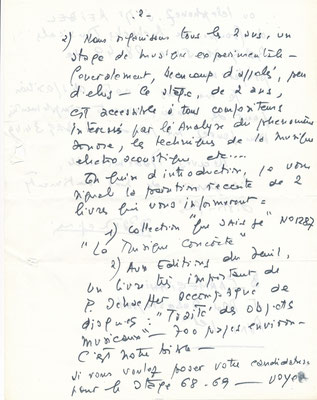 - 2 -
2) Nous organisons tous les 2 ans, un
stage de musique expérimentale -
(evidemment, beaucoup d'appelés, peu
d'élus - Ce stage, de 2 ans,
est accessible à tous compositeurs
intéressés par le Analyse du phénomène
sonore, les techniques de la musique
electro acoustique, etc...
En guise d'introduction, je vous
signale la parution récente de 2
livres qui vous informeront =
1) Collection "Que Sais Je" No 1287
"La Musique Concrète"
2) Aux Editions du Seuil,
un livre très important de
P. Schaeffer accompagné de
disques : "Traité des Objets
musicaux" - 700 pages environ -
C'est notre bible -
Si vous voulez poser votre candidature
pour le Stage 68-69 — voyez